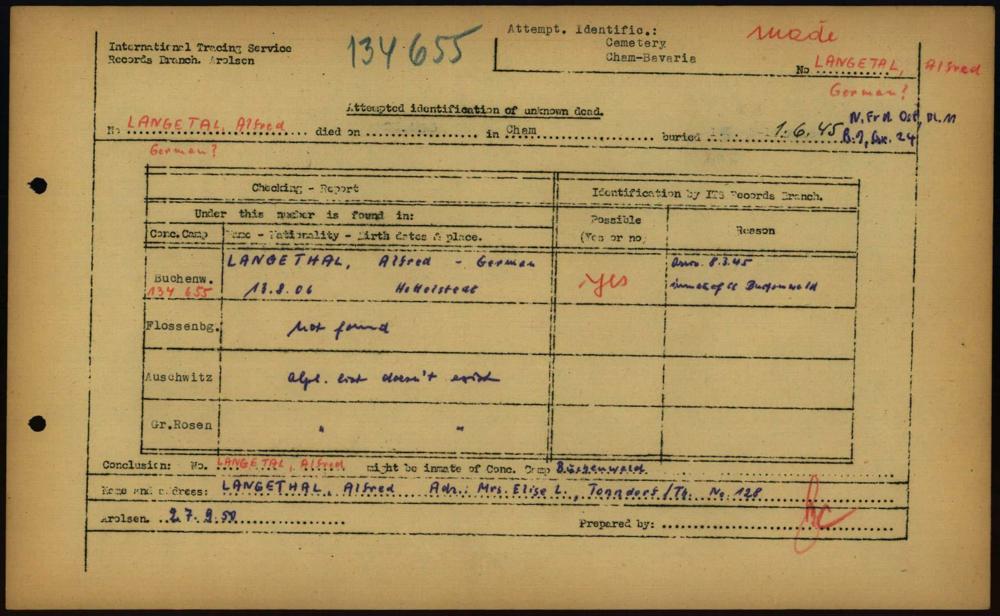 International Tracing Service
Records Branch. Arolsen
134 655
Attempt. Identific.:
Cemetery
Cham-Bavaria
made
No LANGETAL, Alfred
German?
Attempted identification of unknown dead.
No LANGETAL, Alfred died on in Cham buried 1.6.45
German?
Checking - Report
Identification by ITS Records Branch.
Under this number is found in:
Possible
(Yes or no)
Reason
Conc.Camp
Name - Nationality - Birth dates & place.
Buchenw.
134 655
LANGETHAL, Alfred - German
13.8.06 Hottelstedt
yes
8.3.45
inmate of CC Buchenwald
Flossenbg.
Not found
Auschwitz
alph. list doesn't exist
Gr.Rosen
" "
Conclusion: No. LANGETAL, Alfred might be inmate of Conc. Camp Buchenwald
Name and address: LANGETHAL, Alfred Adr.: Mrs. Elise L., Tonndorf/Th. No 128
Arolsen. 27.9.50
Prepared by: